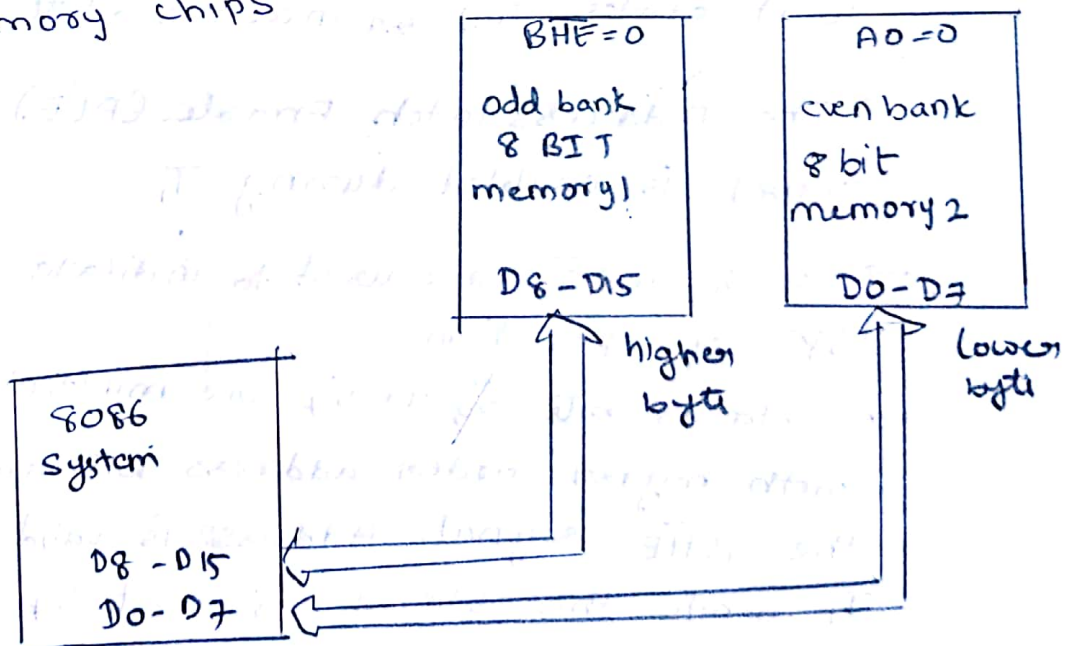 mory chips
B̅H̅E̅=0
odd bank
8 BIT
memory1
D8-D15
A0=0
even bank
8 bit
memory 2
D0-D7
higher
byte
lower
byte
8086
system
D8-D15
D0-D7